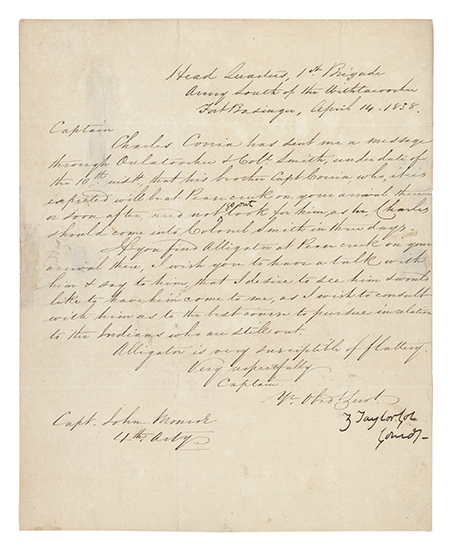 Head Quarters, 1st Brigade
Army South of the Withlacooche
Fort Basinger, April 14. 1838.
Captain
Charles Coria has sent me a message
through Oulatoochee & Colo. Smith, under date of
the 10th inst. that his brother Capt. Coria, who, it is
expected will be at Pean creek on your arrival there
or soon after, need not go out look for him, as he, Charles
should come into Colonel Smith in three days.
If you find Alligator at Pean creek on your
arrival there, I wish you to have a talk with
him & say to him, that I desire to see him & would
like to have him come to me, as I wish to consult
with him as to the best course to pursue in relation
to the Indians who are still out.
Alligator is very susceptible of flattery.
Very respectfully
Captain
Yr. Obdt Servt.
Z Taylor Col
Comdt
Capt. John Monroe
4th Arty